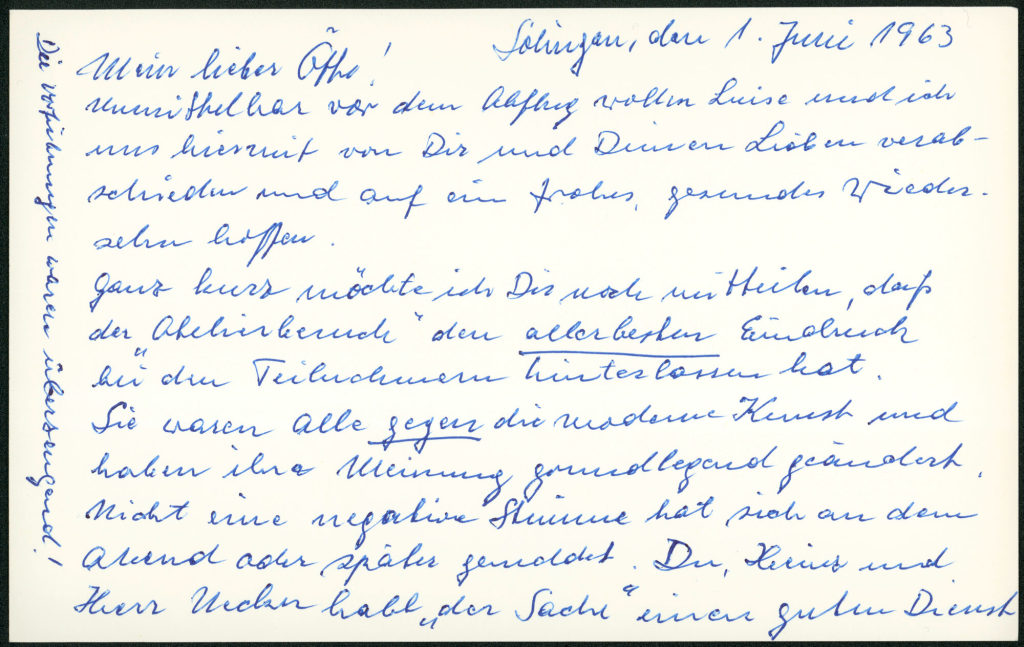 Solingen, den 1. Juni 1963
Mein lieber Otto!
unmittelbar vor dem Abflug wollen Luise und ich
uns hiermit von Dir und Deinen Lieben verab-
schieden und auf ein frohes, gesundes Wieder-
sehn hoffen.
Ganz kurz möchte ich Dir noch mitteilen, daß
der „Atelierbesuch" den allerbesten Eindruck
bei den Teilnehmern hinterlassen hat.
Sie waren Alle gegen die moderne Kunst und
haben ihre Meinung grundlegend geändert.
Nicht eine negative Stimme hat sich an dem
Abend oder später gemeldet. Du, Heinz und
Herr Uecker habt „der Sache" einen guten Dienst
Die Vorführungen waren überzeugend!